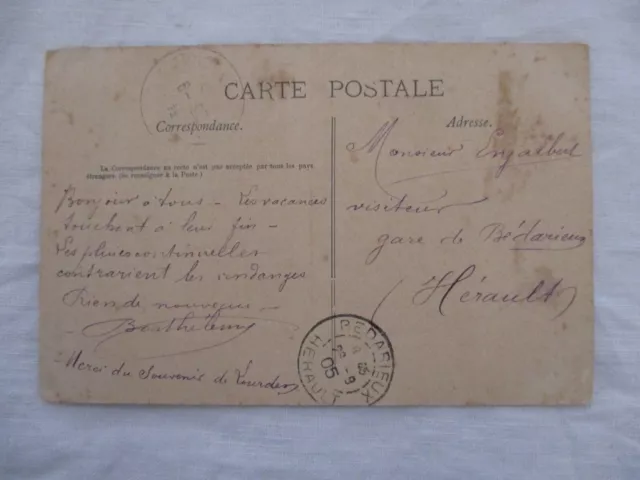 CARTE POSTALE
Correspondance.
Adresse.
La Correspondance au recto n'est pas acceptée par tous les pays
étrangers (Se renseigner à la Poste)
Bonjour à tous - Les vacances
touchent à leur fin -
Les pluies continuelles
contrarient les vendanges
Rien de nouveau
- Barthélemy
Merci du Souvenir de Lourdes
Monsieur Engalbert
visiteur
gare de Bédarieux
(Hérault)
BEDARIEUX
05
HERAULT